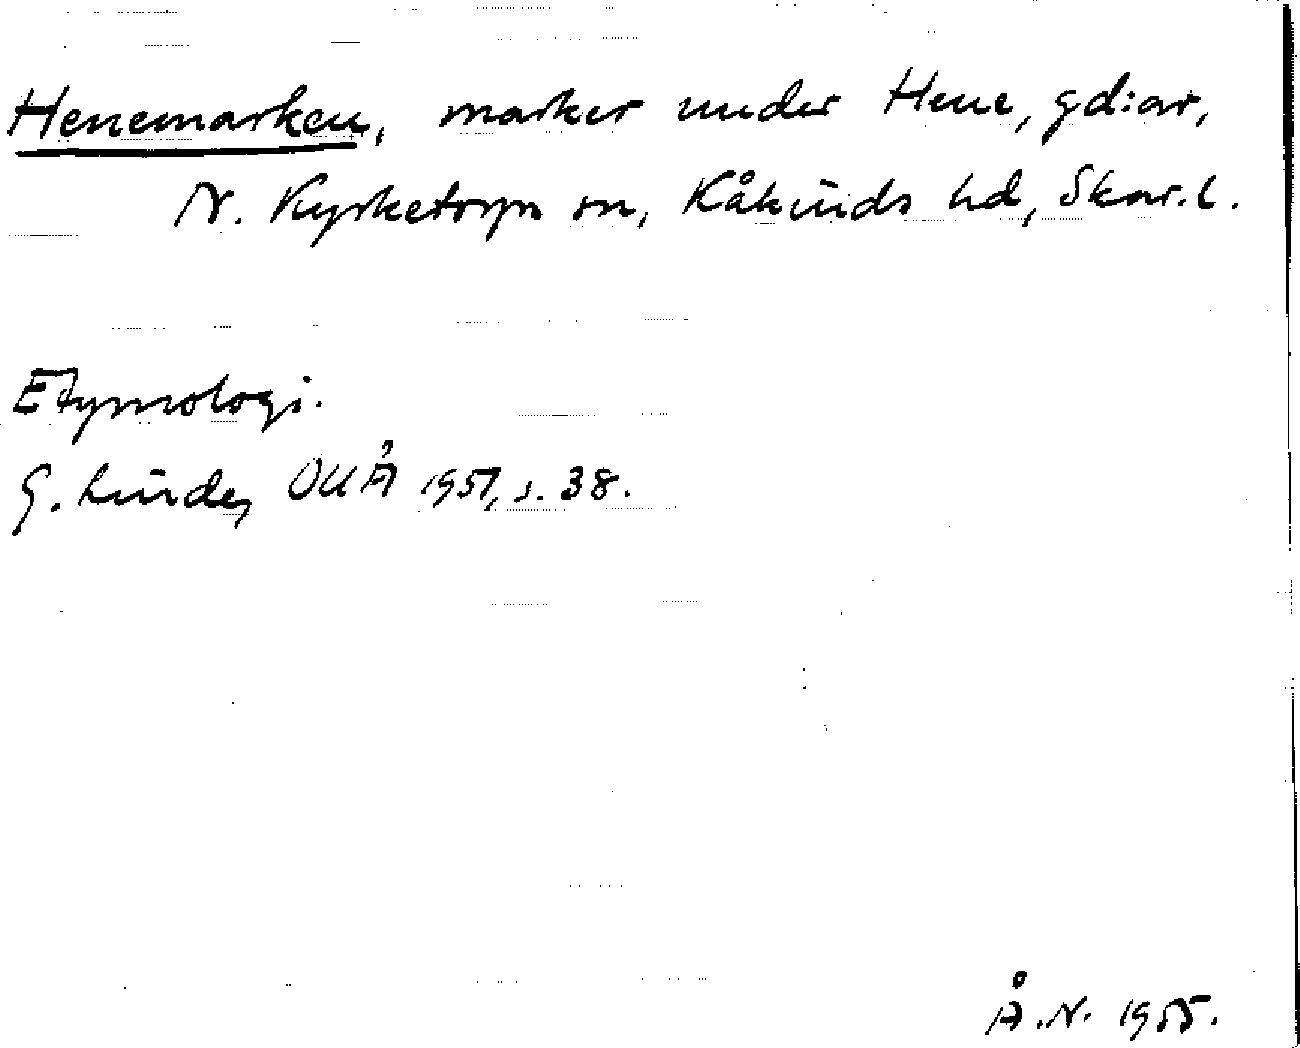 Henemarken, marker under Hene, gd:ar,
N. Kyrketorps sn, Kåkinds hd, Skar. l.
Etymologi.
G. Linde, OUÅ 1951, s. 38.
Å. N. 1955.